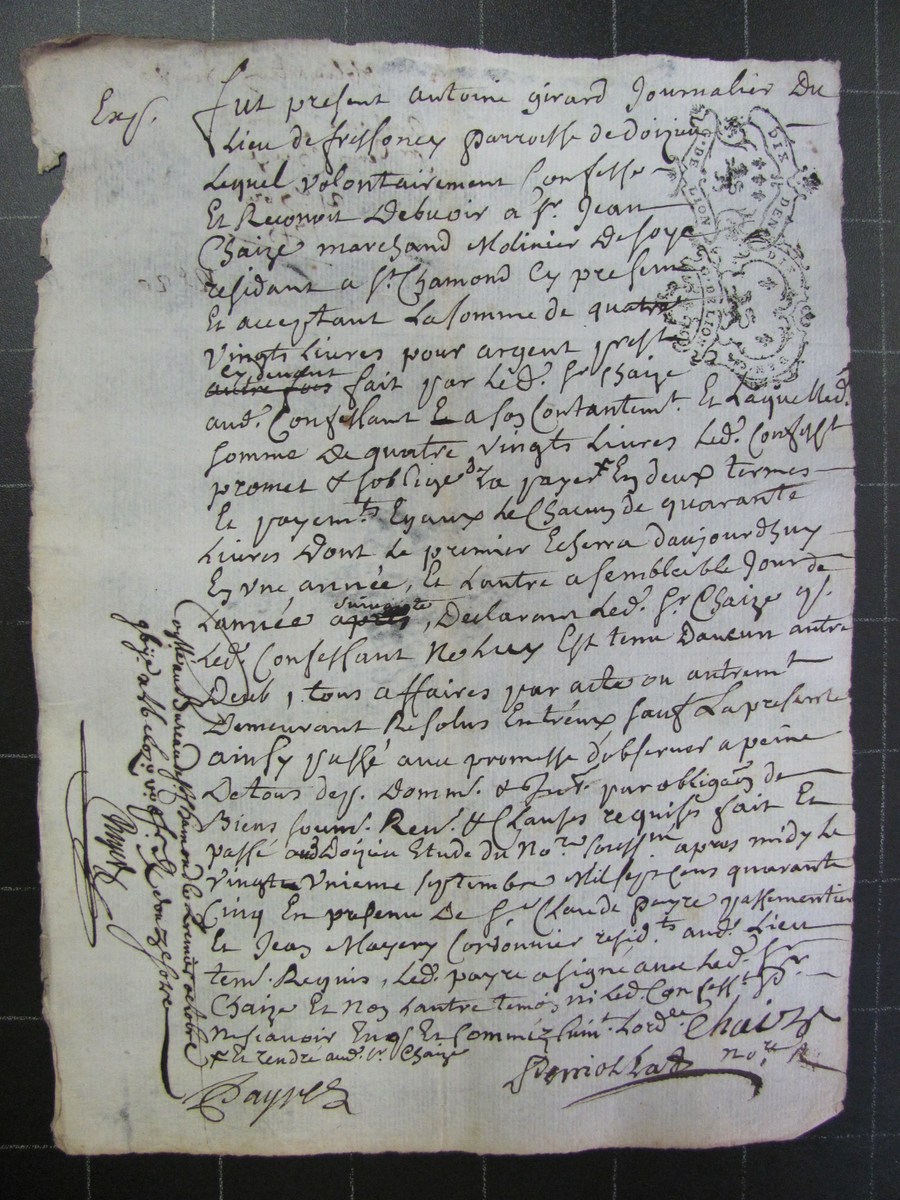 Exp.
fut present antoine girard Journalier Du
Lieu de frissoney parroisse de doizieu
Lequel volontairement Confesse
Et Reconoit Debvoir a Sr. Jean
Chaize marchand Molinier De soye
residant a St. Chamond Cy present
Et acceptant La somme de quatre
vingts Livres pour argent prest
cy devant
autre fois fait par Led. Sr. Chaize
aud. Confessant Et a son Contantemt. Et Laquelle d.
somme De quatre vingts Livres Led. Confesst
promet & soblige de La payer En deux termes
Et payemts. Egaux Le Chacun de quarante
Livres Dont Le premier Echerra daujourdhuy
En une année, Et Lautre a semblable Jour de
suivante
Lannée après, Declarant Led. Sr. Chaize q.
Led. Confessant Ne Luy Est tenu Daucun autre
Deub, tous affaires par acte ou autremt
Demeurant Resolus Entréux sauf La presente
ainsy passé avec promesse d'observer a peine
De tous desp. Domm. & Jnt. par obligaon de
Biens soum. Ren. & Clauses requises fait Et
passé aud Doizieu Etude du Nore. soussné apres midy Le
vingte Unieme septembre Mil sept Cens quarante
Cinq En presence De Sr. Claude Payre passementier
Et Jean Cordonnier residts. aud. Lieu
tem. Requis, Led. payre a signé avec Led. Sr
Chaize Et Non Lautre temoin ni Led. Confesst. pr.
Ne scavoir Enqs Et sommez suivt. Lordce
Et rendre aud. Sr. Chaize
Chaize
Payre
Nore
DIS J. DEN
G. DE LION
Bureau de St. Chamond Le premier octobre